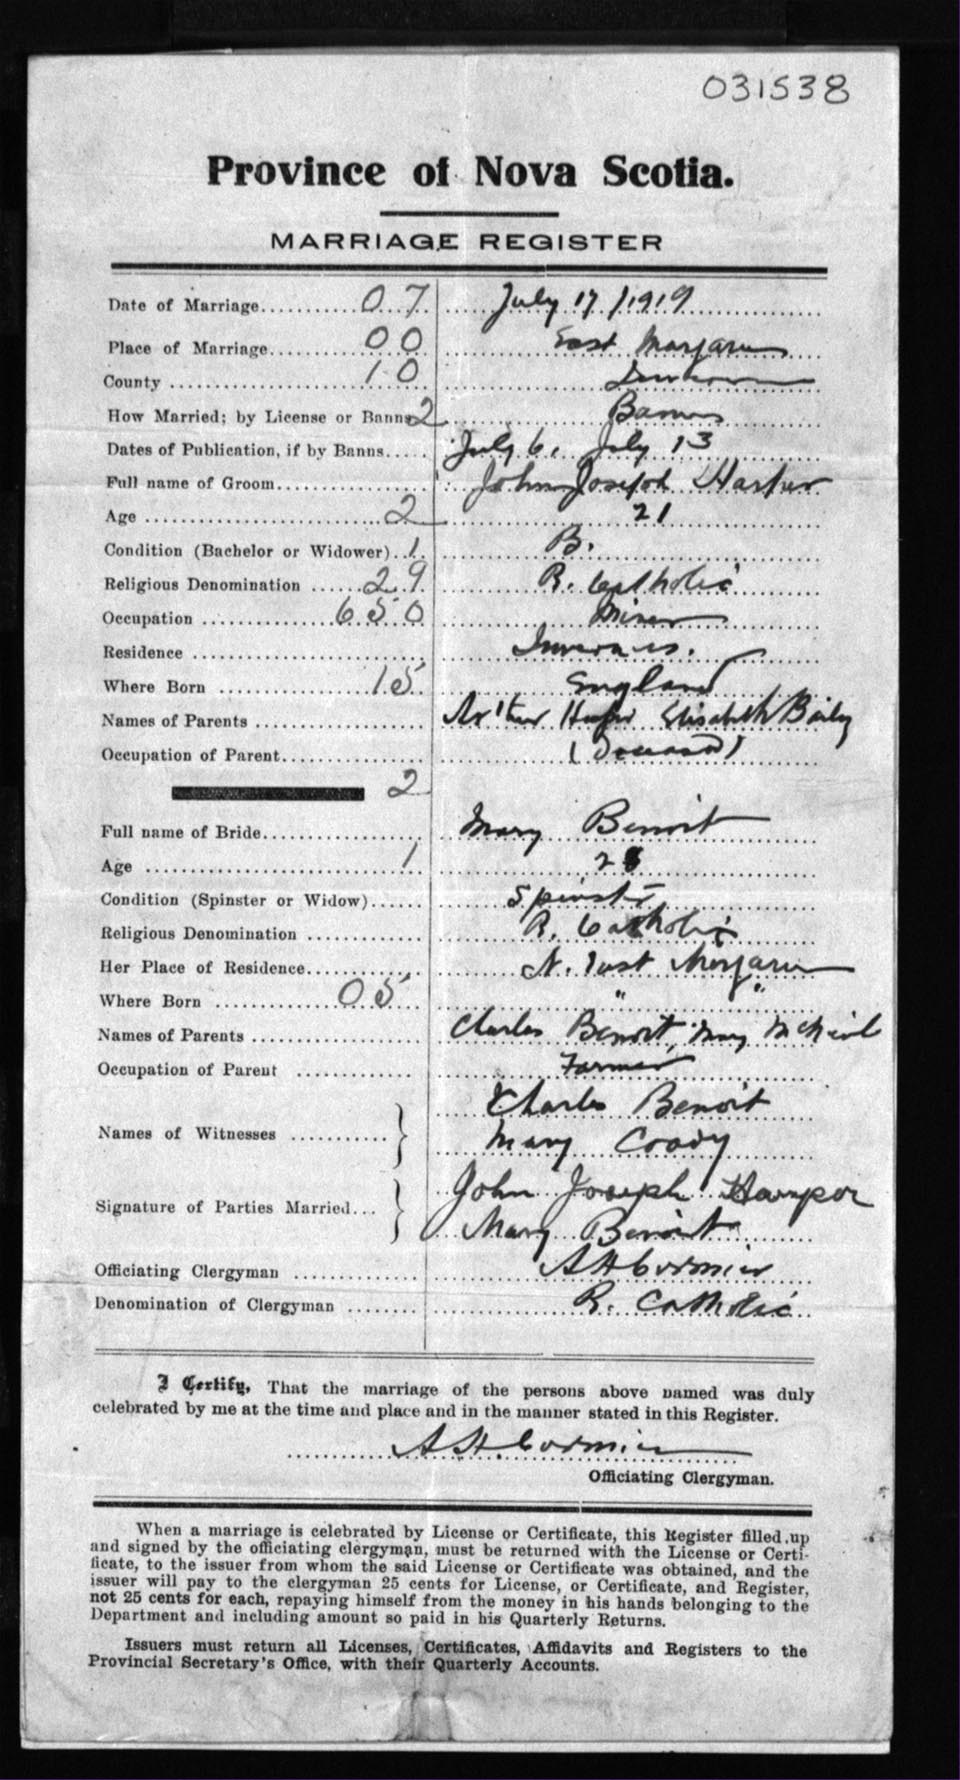 031538
Province of Nova Scotia.
MARRIAGE REGISTER
Date of Marriage 07 July 17 / 1919
Place of Marriage 00 East Margaree
County 10
How Married; by License or Banns 2 Banns
Dates of Publication, if by Banns July 6, July 13
Full name of Groom John Joseph Harper
Age 2 21
Condition (Bachelor or Widower) 1 B.
Religious Denomination 29 R. Catholic
Occupation 650 Miner
Residence Inverness.
Where Born 15 England
Names of Parents Arthur Harper Elisabeth Baily
Occupation of Parent (Deceased)
2
Full name of Bride Mary Benoit
Age 1
Condition (Spinster or Widow) Spinster
Religious Denomination R. Catholic
Her Place of Residence N. East Margaree
Where Born 05 " "
Names of Parents Charles Benoit, Mary McNeil
Occupation of Parent Farmer
Names of Witnesses Charles Benoit
Mary Coady
Signature of Parties Married John Joseph Harper
Mary Benoit
Officiating Clergyman A H Cormier
Denomination of Clergyman R. Catholic
I Certify, That the marriage of the persons above named was duly
celebrated by me at the time and place and in the manner stated in this Register.
A H Cormier
Officiating Clergyman.
When a marriage is celebrated by License or Certificate, this Register filled up
and signed by the officiating clergyman, must be returned with the License or Certi-
ficate, to the issuer from whom the said License or Certificate was obtained, and the
issuer will pay to the clergyman 25 cents for License, or Certificate, and Register,
not 25 cents for each, repaying himself from the money in his hands belonging to the
Department and including amount so paid in his Quarterly Returns.
Issuers must return all Licenses, Certificates, Affidavits and Registers to the
Provincial Secretary's Office, with their Quarterly Accounts.